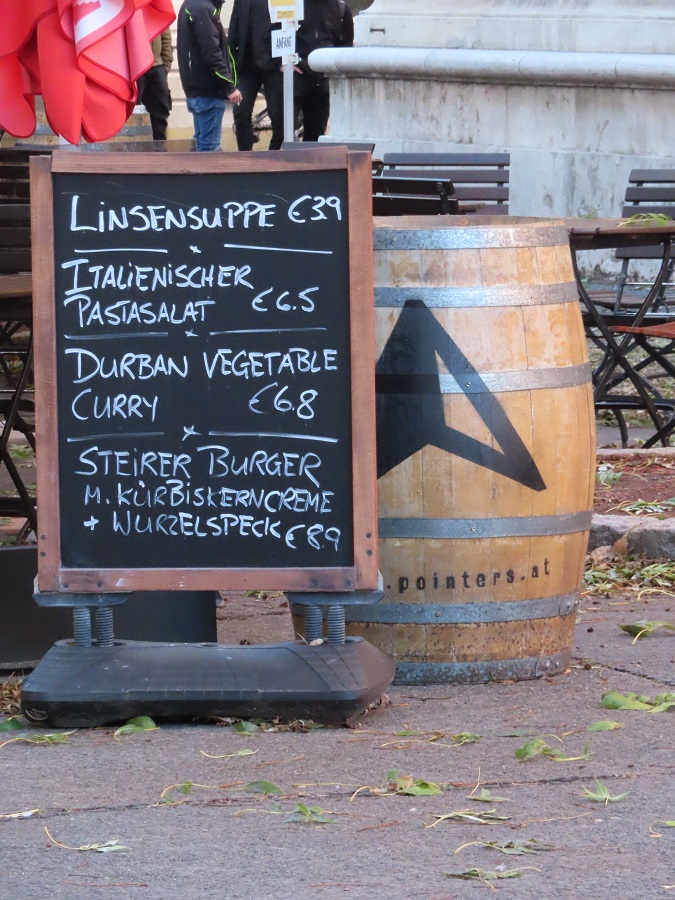 ANFANG
LINSENSUPPE €39
ITALIENISCHER
PASTASALAT €6.5
DURBAN VEGETABLE
CURRY €6.8
STEIRER BURGER
M. KÜRBISKERNCREME
+ WURZELSPECK €89
pointers.at